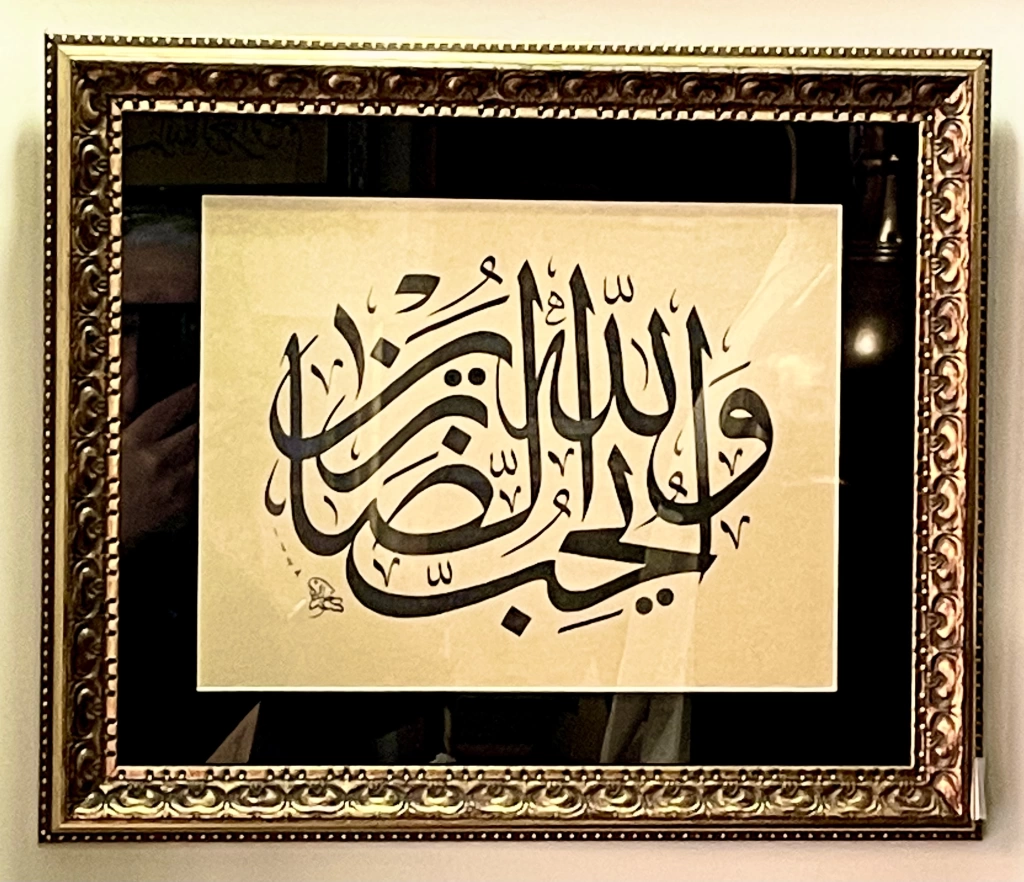 وَاللّٰهُ يُحِبُّ الصَّابِرِينَ